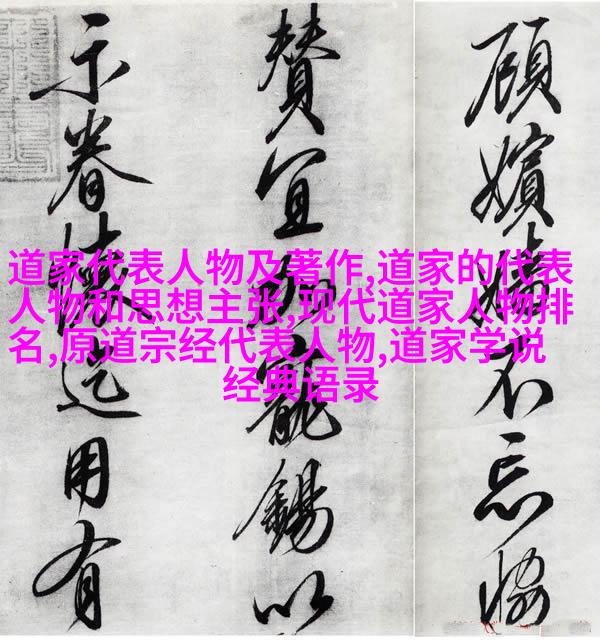 道家代表人物及著作,道家的代表
人物和思想主张,现代道家人物排
名,原道宗经代表人物,道家学说
经典语录
顧嬪嬙不忘協
贊宜加寵錫以
示眷懷迄用有